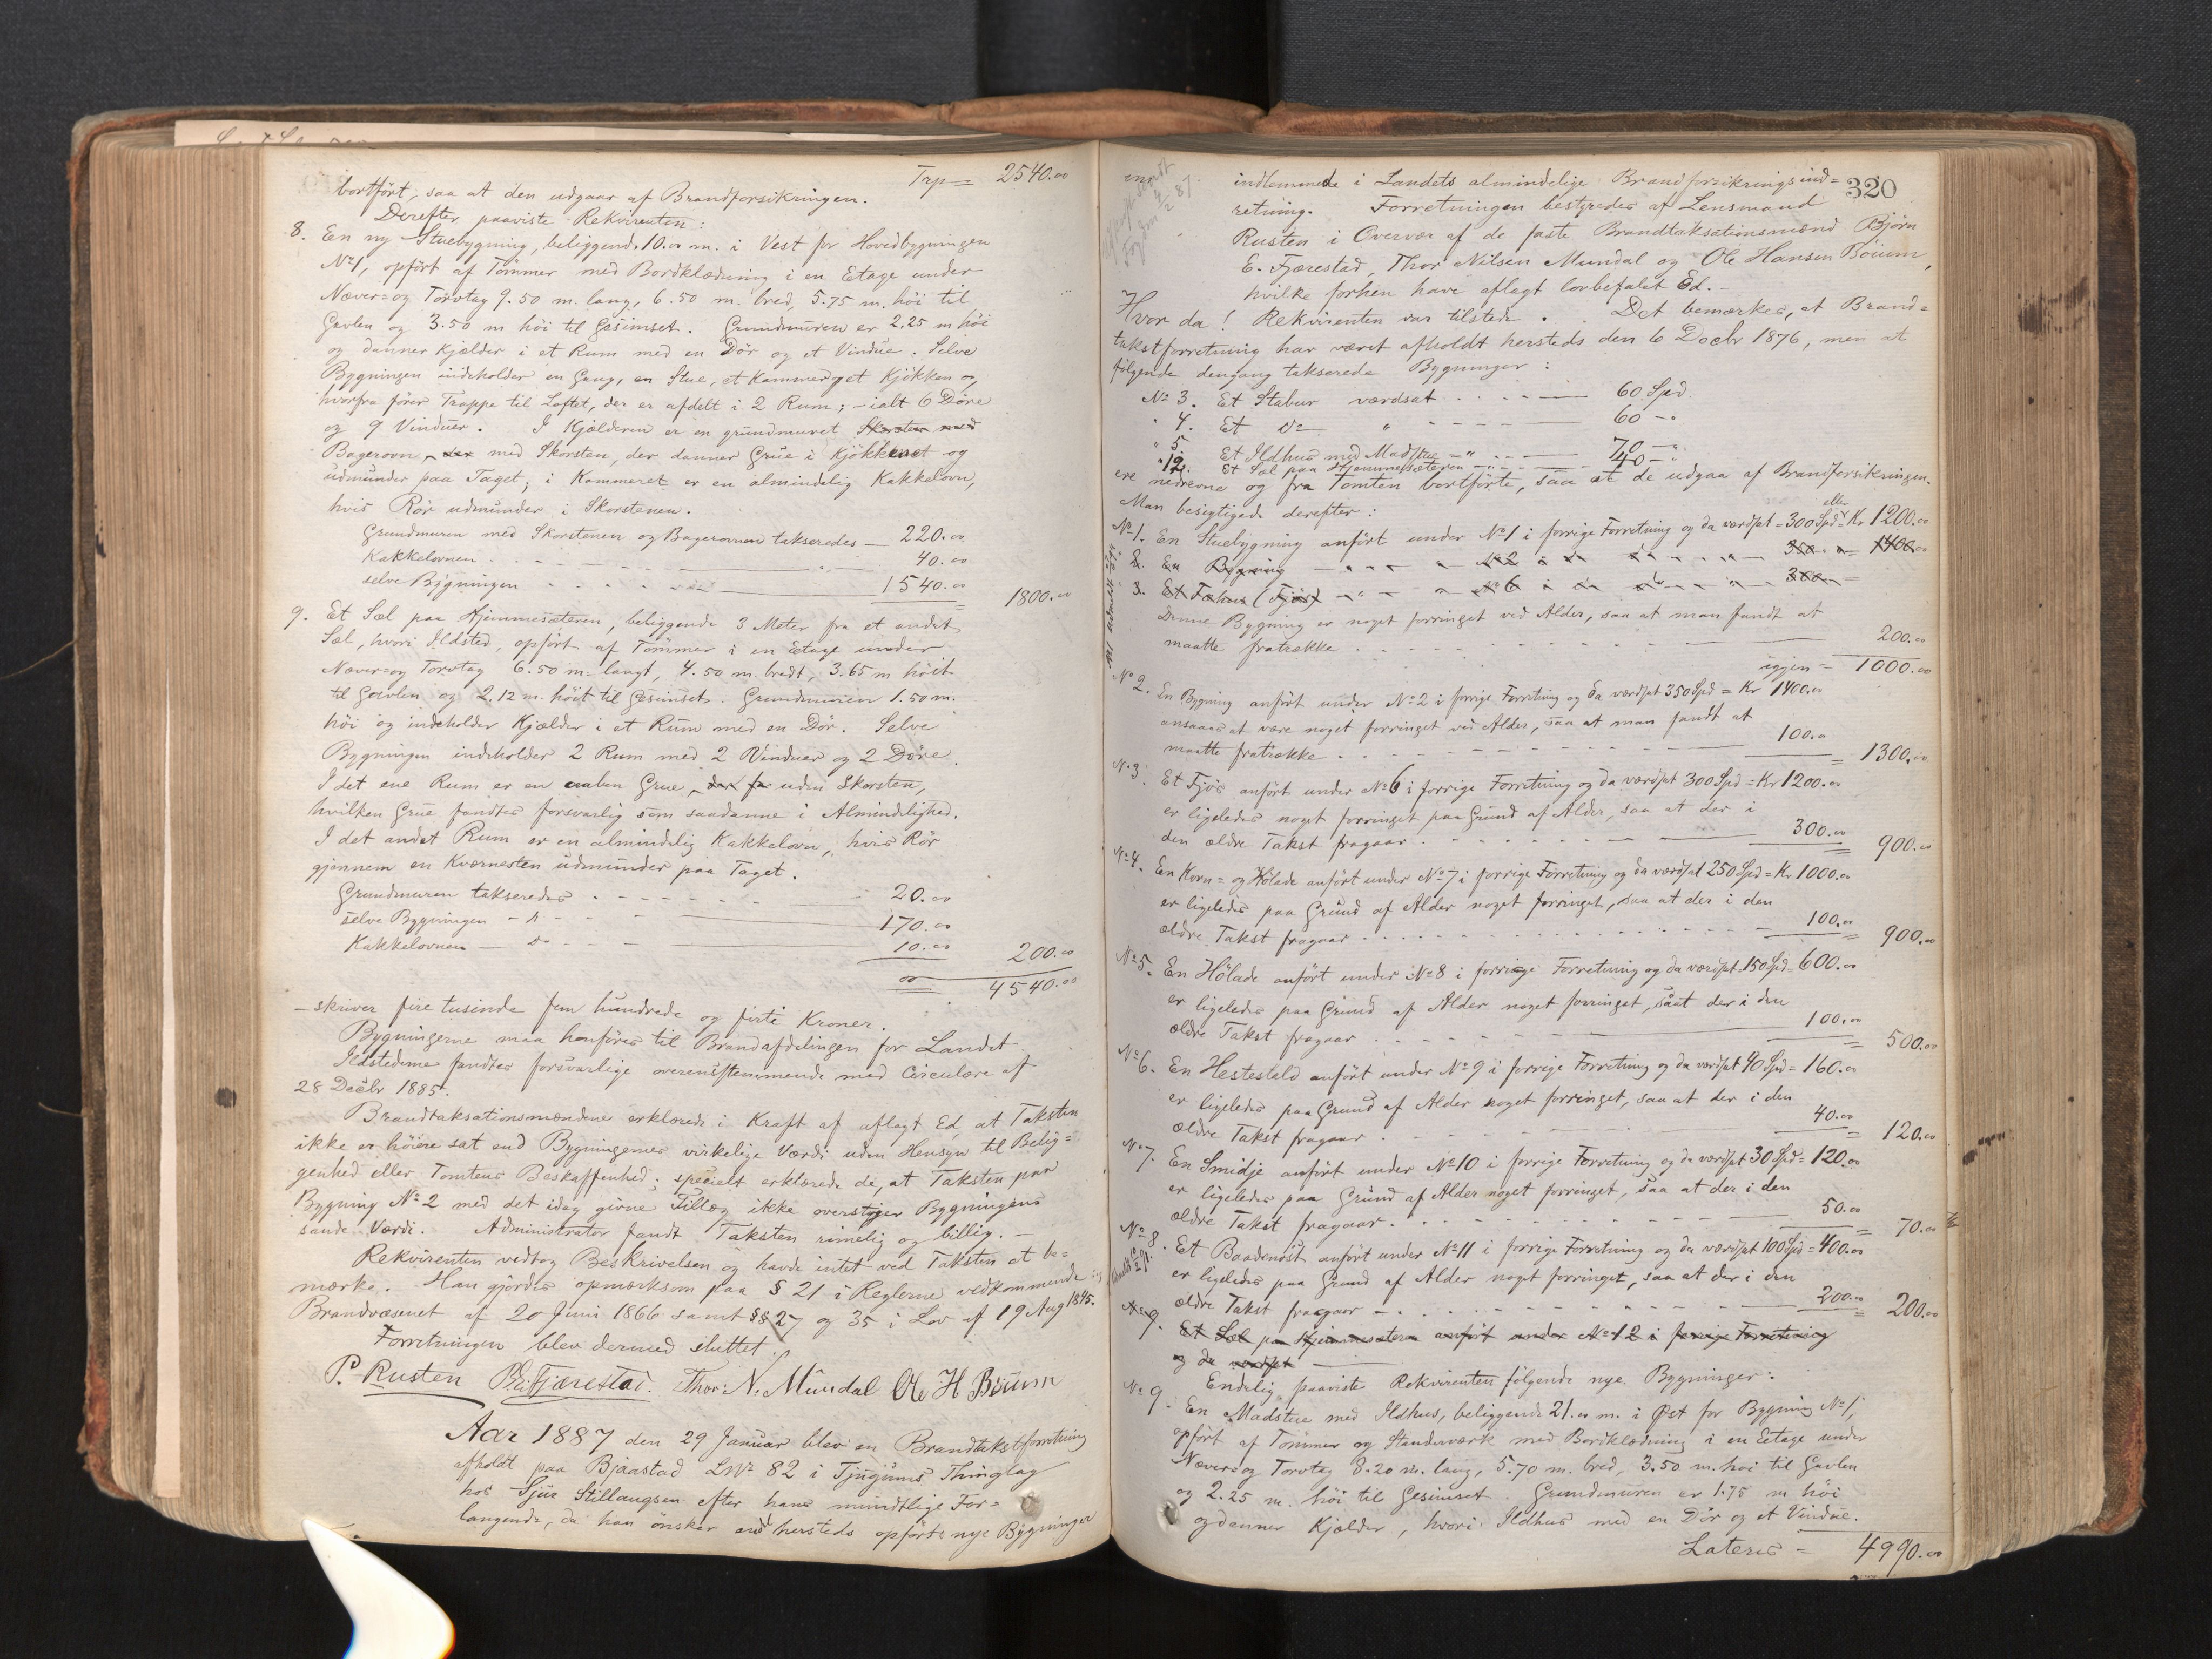 Trp = 2540.00
bortført, saa at den udgaar af Brandforsikringen.
Derefter paaviste Rekvirenten:
8. En ny Stuebygning, beliggende 10.00 m. i Vest for Hovedbygningen
No 1, opført af Tømmer med Bordklædning i en Etage under
Næver= og Torvtag 9.50 m. lang, 6.50 m. bred, 5.75 m. høi til
Gavlen og 3.50 m høi til Gesimset. Grundmuren er 2.25 m høi
og danner Kjælder i et Rum med en Dør og et Vindue. Selve
Bygningen indeholder en Gang, en Stue, et Kammer, et Kjøkken og
hvorfra fører Trappe til Loftet, der er afdelt i 2 Rum; - ialt 6 Døre
og 9 Vinduer. I Kjælderen er en grundmuret Skorsten med
Bagerovn, der med Skorsten, der danner Grue i Kjøkkenet og
udmunder paa Taget; i Kammeret er en almindelig Kakkelovn,
hvis Rør udmunder i Skorstenen.
Grundmuren med Skorstenen og Bagerovnen takseredes — 220.00
Kakkelovnen . - - - - - 40.00
selve Bygningen - - - - - 1540.00
1800.00
9. Et Sæl paa Hjemmesæteren, beliggende 3 Meter fra et andet
Sæl, hvori Ildsted, opført af Tømmer i en Etage under
Næver= og Torvtag 6.50 m. langt, 4.50 m. bredt, 3.65 m høit
til Gavlen og 2.12 m. høit til Gesimset. Grundmuren 1.50 m.
høi og indeholder Kjælder i et Rum med en Dør. Selve
Bygningen indeholder 2 Rum med 2 Vinduer og 2 Døre.
I det ene Rum er en aaben Grue, der fr uden Skorsten,
hvilken Grue fandtes forsvarlig som saadanne i Almindelighed.
I det andet Rum er en almindelig Kakkelovn, hvis Rør
gjennem en Kværnesten udmunder paa Taget.
Grundmuren takseredes - - - - 20.00
selve Bygningen - " - - 170.00
Kakkelovnen — do - - 10.00 200.00
4540.00
- skriver fire tusinde fem hundrede og firti Kroner.
Bygningerne maa henføres til Brandafdelingen for Landet.
Ildstederne fandtes forsvarlige overensstemmende med Circulære af
28 Decbr 1885.
Brandtaksationsmændene erklærede i Kraft af aflagt Ed, at Taksten
ikke er høiere sat end Bygningernes virkelige Værdi uden Hensyn til Belig=
genhed eller Tomtens Beskaffenhed; specielt erklærede de, at Taksten paa
Bygning No 2 med det idag givne Tillæg ikke overstiger Bygningens
sande Værdi. Administrator fandt Taksten rimelig og billig. -
Rekvirenten vedtog Beskrivelsen og havde intet ved Taksten at be=
mærke. Han gjordes opmærksom paa § 21 i Reglerne vedkommende
Brandvæsenet af 20 Juni 1866 samt §§ 27 og 35 i Lov af 19 Aug 1845.
Forretningen blev dermed sluttet.
P. Rusten B. E. Fjærestad. Thor N. Mundal Ole H Bøium
Aar 1887 den 29 Januar blev en Brandtakstforretning
afholdt paa Bjaastad LNo 82 i Tjugums Thinglag
hos Sjur Stillaugsen efter hans mundtlige For=
langende, da han ønsker at hersteds opførte nye Bygninger
320
indlemmede i Landets almindelige Brandforsikringsind=
retning. Forretningen bestyredes af Lensmand
Rusten i Overvær af de faste Brandtaksationsmænd Bjørn
E. Fjærestad, Thor Nilsen Mundal og Ole Hansen Bøium,
hvilke forhen have aflagt lovbefalet Ed. -
Hvor da! Rekvirenten var tilstede. Det bemærkes, at Brand=
takstforretning har været afholdt hersteds den 6 Decbr 1876, men at
følgende dengang takserede Bygninger:
No 3. Et Stabur værdsat . . . - — 60 Spd.
" 4. Et Do " - - - - — 60 - "
" 5. Et Ildhus med Madstue - " - - — 70 - "
" 12. Et Sæl paa Hjemmesæteren - " - — 40 - "
ere nedrevne og fra Tomten bortførte, saa at de udgaa af Brandforsikringen.
Man besigtigede derefter:
No 1. En Stuebygning anført under No 1 i forrige Forretning og da værdsat = 300 Spd eller Kr 1200.00
2. En Bygning - " - " - No 2 i do do " - " - 350 - " = 1400.00
3. Et Fæhus (Fjøs) - " - " - No 6 i do do " - " - 300
Denne Bygning er noget forringet ved Alder, saa at man fandt at
maatte fratrække . . . . . . 200.00
igjen = 1000.00
No 2. En Bygning anført under No 2 i forrige Forretning og da værdsat 350 Spd = Kr 1400.00
ansaaes at være noget forringet ved Alder, saa at man fandt at
maatte fratrække . - - - - - 100.00 = 1300.00
No 3. Et Fjøs anført under No 6 i forrige Forretning og da værdsat 300 Spd = Kr 1200.00
er ligeledes noget forringet paa Grund af Alder, saa at der i
den ældre Takst fragaar . . . . . 300.00 = 900.00
No 4. En Korn= og Hølade anført under No 7 i forrige Forretning og da værdsat 250 Spd = Kr. 1000.00
er ligeledes paa Grund af Alder noget forringet, saa at der i den
ældre Takst fragaar . . . . . 100.00 = 900.00
No 5. En Hølade anført under No 8 i forrige Forretning og da værdsat 150 Spd = 600.00
er ligeledes paa Grund af Alder noget forringet, saat der i den
ældre Takst fragaar . . . . 100.00 = 500.00
No 6. En Hestestald anført under No 9 i forrige Forretning og da værdsat 40 Spd = 160.00
er ligeledes paa Grund af Alder noget forringet, saa at der i den
ældre Takst fragaar . . . . 40.00 = 120.00
No 7. En Smidje anført under No 10 i forrige Forretning og da værdsat 30 Spd = 120.00
er ligeledes paa Grund af Alder noget forringet, saa at der i den
ældre Takst fragaar. . . . . 50.00 = 70.00
No 8. Et Baadenøst anført under No 11 i forrige Forretning og da værdsat 100 Spd = 400.00
er ligeledes paa Grund af Alder noget forringet, saa at der i den
ældre Takst fragaar - . . . . 200.00 = 200.00
No 9. Et Sæl paa Hjemmesæteren anført under No 12 i forrige Forretning
og da værdsat —
Endelig paaviste Rekvirenten følgende nye Bygninger:
No 9. En Madstue med Ildhus, beliggende 21.00 m. i Øst for Bygning No 1,
opført af Tømmer og Standerværk med Bordklædning i en Etage under
Næver= og Torvtag 8.20 m. lang, 5.70 m. bred, 3.50 m. høi til Gavlen
og 2.25 m. høi til Gesimset. Grundmuren er 1.75 m høi
og danner Kjælder, hvori Ildhus med en Dør og et Vindue.
Lateris = 4990.00